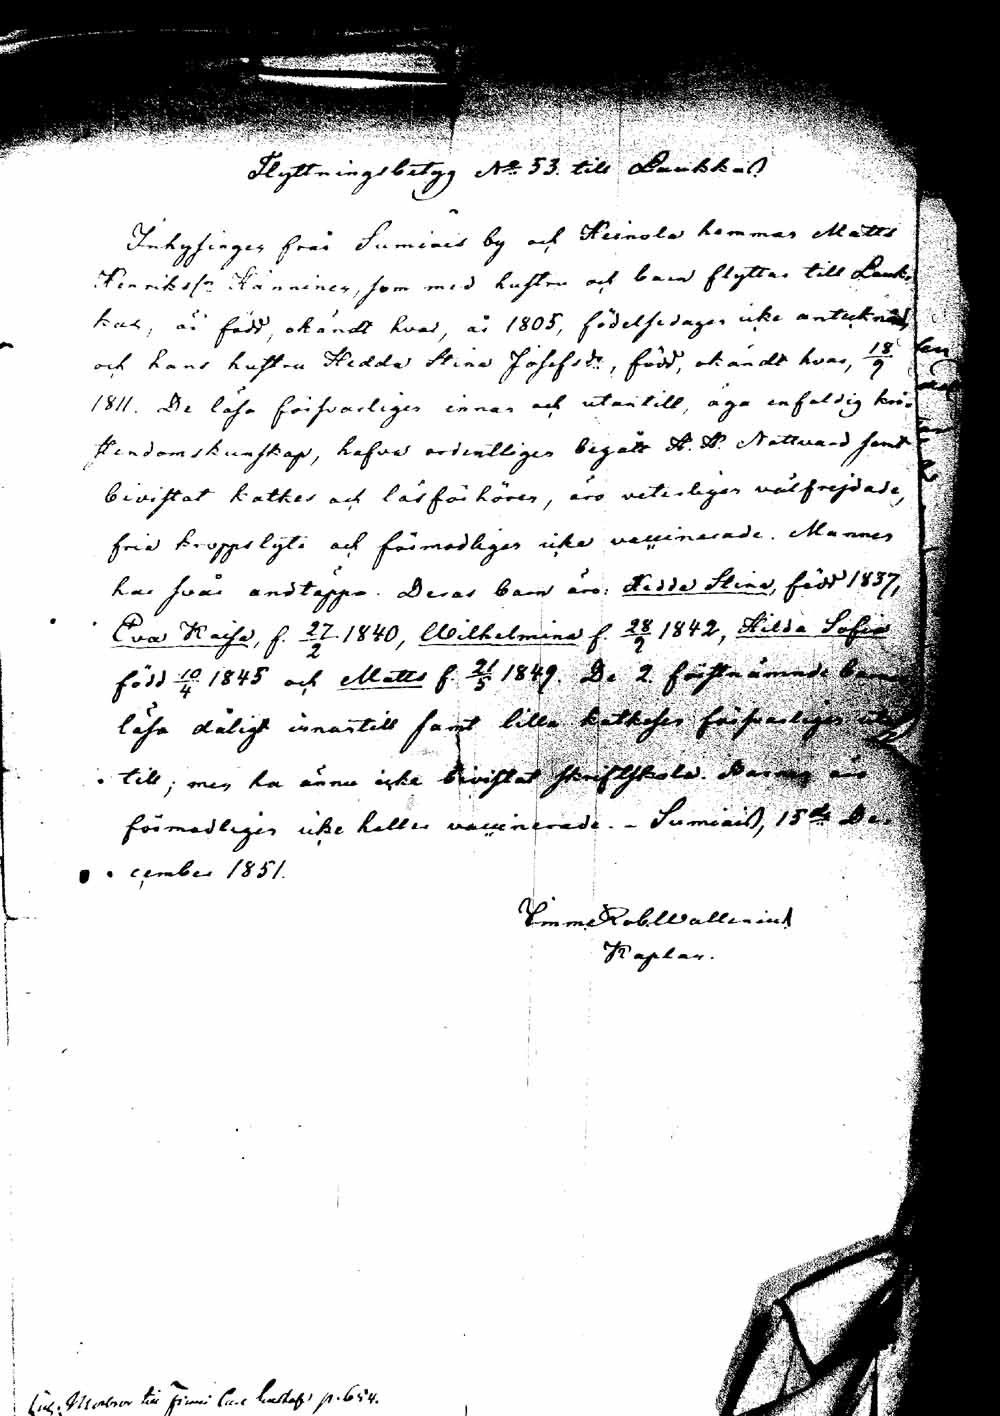 Flyttningsbetyg No 53. till Laukkas.
Inhysingen från Sumiais by och Heinola hemman Matts
Henrikss:n Hänninen, som med hustru och barn flyttar till Lauk-
kas, är född, okändt hvar, år 1805, födelsedagen icke antecknad,
och hans hustru Hedda Stina Josefsdr, född, okändt hvar, 18/9
1811. De läsa försvarligen innan och utantill, äga enfaldig kri-
stendomskunskap, hafva ordentligen begått H. H. Nattvard samt
bivistat katkes och läsförhören, äro veterligen välfrejdade,
fria kroppslyte och förmodligen icke vaccinerade. Mannen
har svår andtäppa. Deras barn äro: Hedda Stina, född 1837,
Eva Kaisa, f. 27/2 1840, Wilhelmina f. 28/9 1842, Hilda Sofia
född 10/4 1845 och Matts f. 21/5 1849. De 2 förstnämnde barnen
läsa dåligt innantill samt lilla katkesen försvarligen utan-
till; men ha ännu icke bivistat skriftskola. Barnen äro
förmodligen icke heller vaccinerade. – Sumiais, 15de De-
cember 1851.
Emme Rob. Wallenius
Kaplan.
till p. 654.